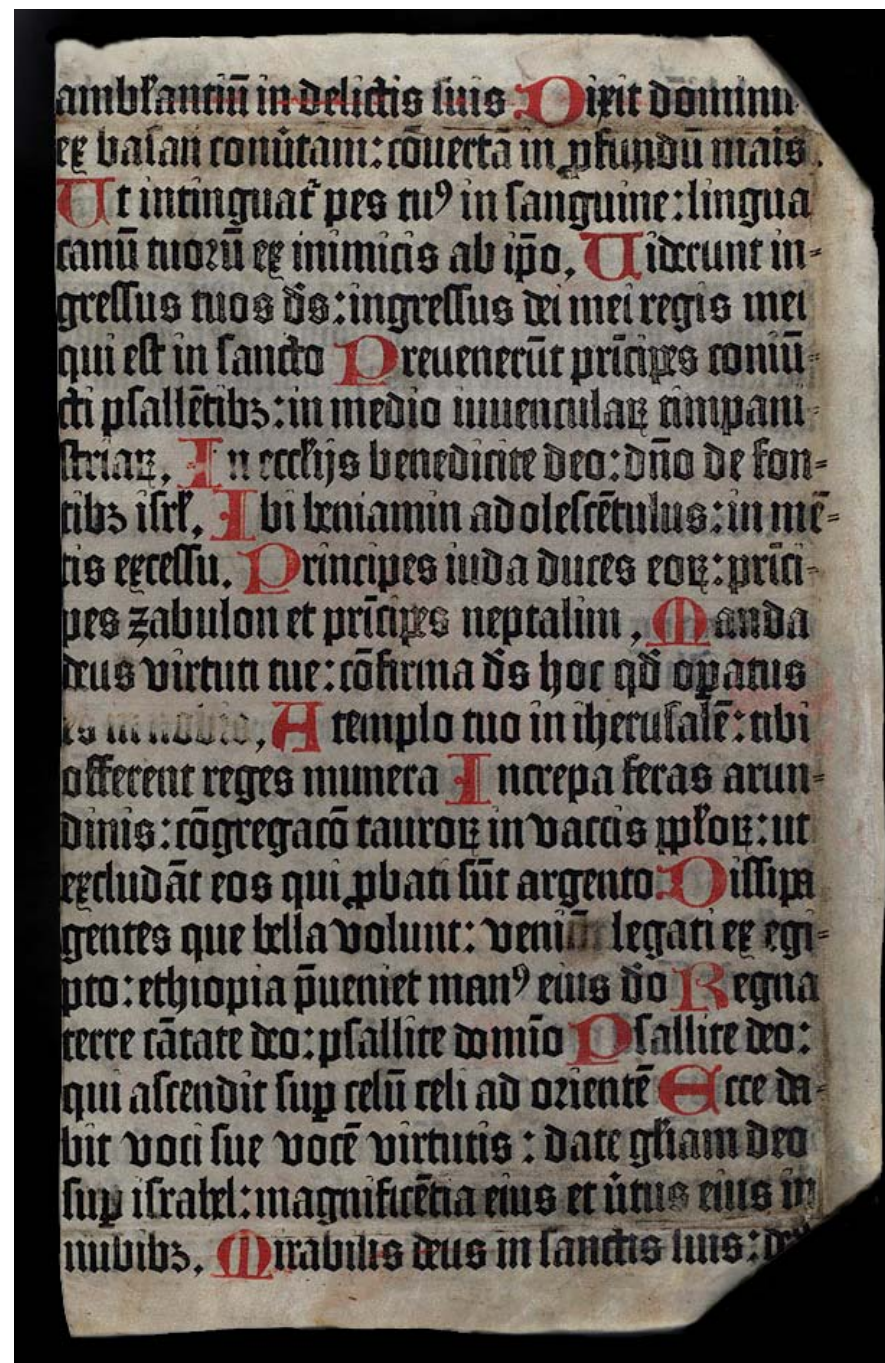 ambłantiū in delictis suis Dixit dominu
ex basan conv̄tam: cōvertā in ꝓfundū maīs.
Ut intinguat᷑ pes tuꝰ in sanguine: lingua
canū tuoꝛū ex inimicis ab ip̄o. Viderunt in⸗
gressus tuos d̄s: ingressus dei mei regis mei
qui est in sancto Prevenerūt pn̄cipes coniū⸗
cti psallētibꝫ: in medio iuvenculaꝝ timpani⸗
striaꝝ. In ecclijs benedicite deo: dn̄o de fon⸗
tibꝫ isrł. Ibi beniamin adolescētulus: in mē⸗
tis excessu. Principes iuda duces eoꝝ: prīci⸗
pes zabulon et prīcipes neptalim. Manda
deus virtuti tue: cōfirma d̄s hoc qd̄ oꝑatus
es in nobis. A templo tuo in iherusalē: tibi
offerent reges munera Increpa feras arun⸗
dinis: cōgregacō tauroꝝ in vaccis pp̄łoꝝ: ut
excludāt eos qui ꝓbati sūt argento Dissipa
gentes que bella volunt: veniūt legati ex egi⸗
pto: ethiopia p̄ueniet manꝰ eius d̄o Regna
terre cātate deo: psallite domīo Psallite deo:
qui ascendit suꝑ celū celi ad oꝛientē Ecce da⸗
bit voci sue vocē virtutis : date głiam deo
suꝑ israhel: magnificētia eius et v̄tus eius in
nubibꝫ. Mirabilis deus in sanctis suis: